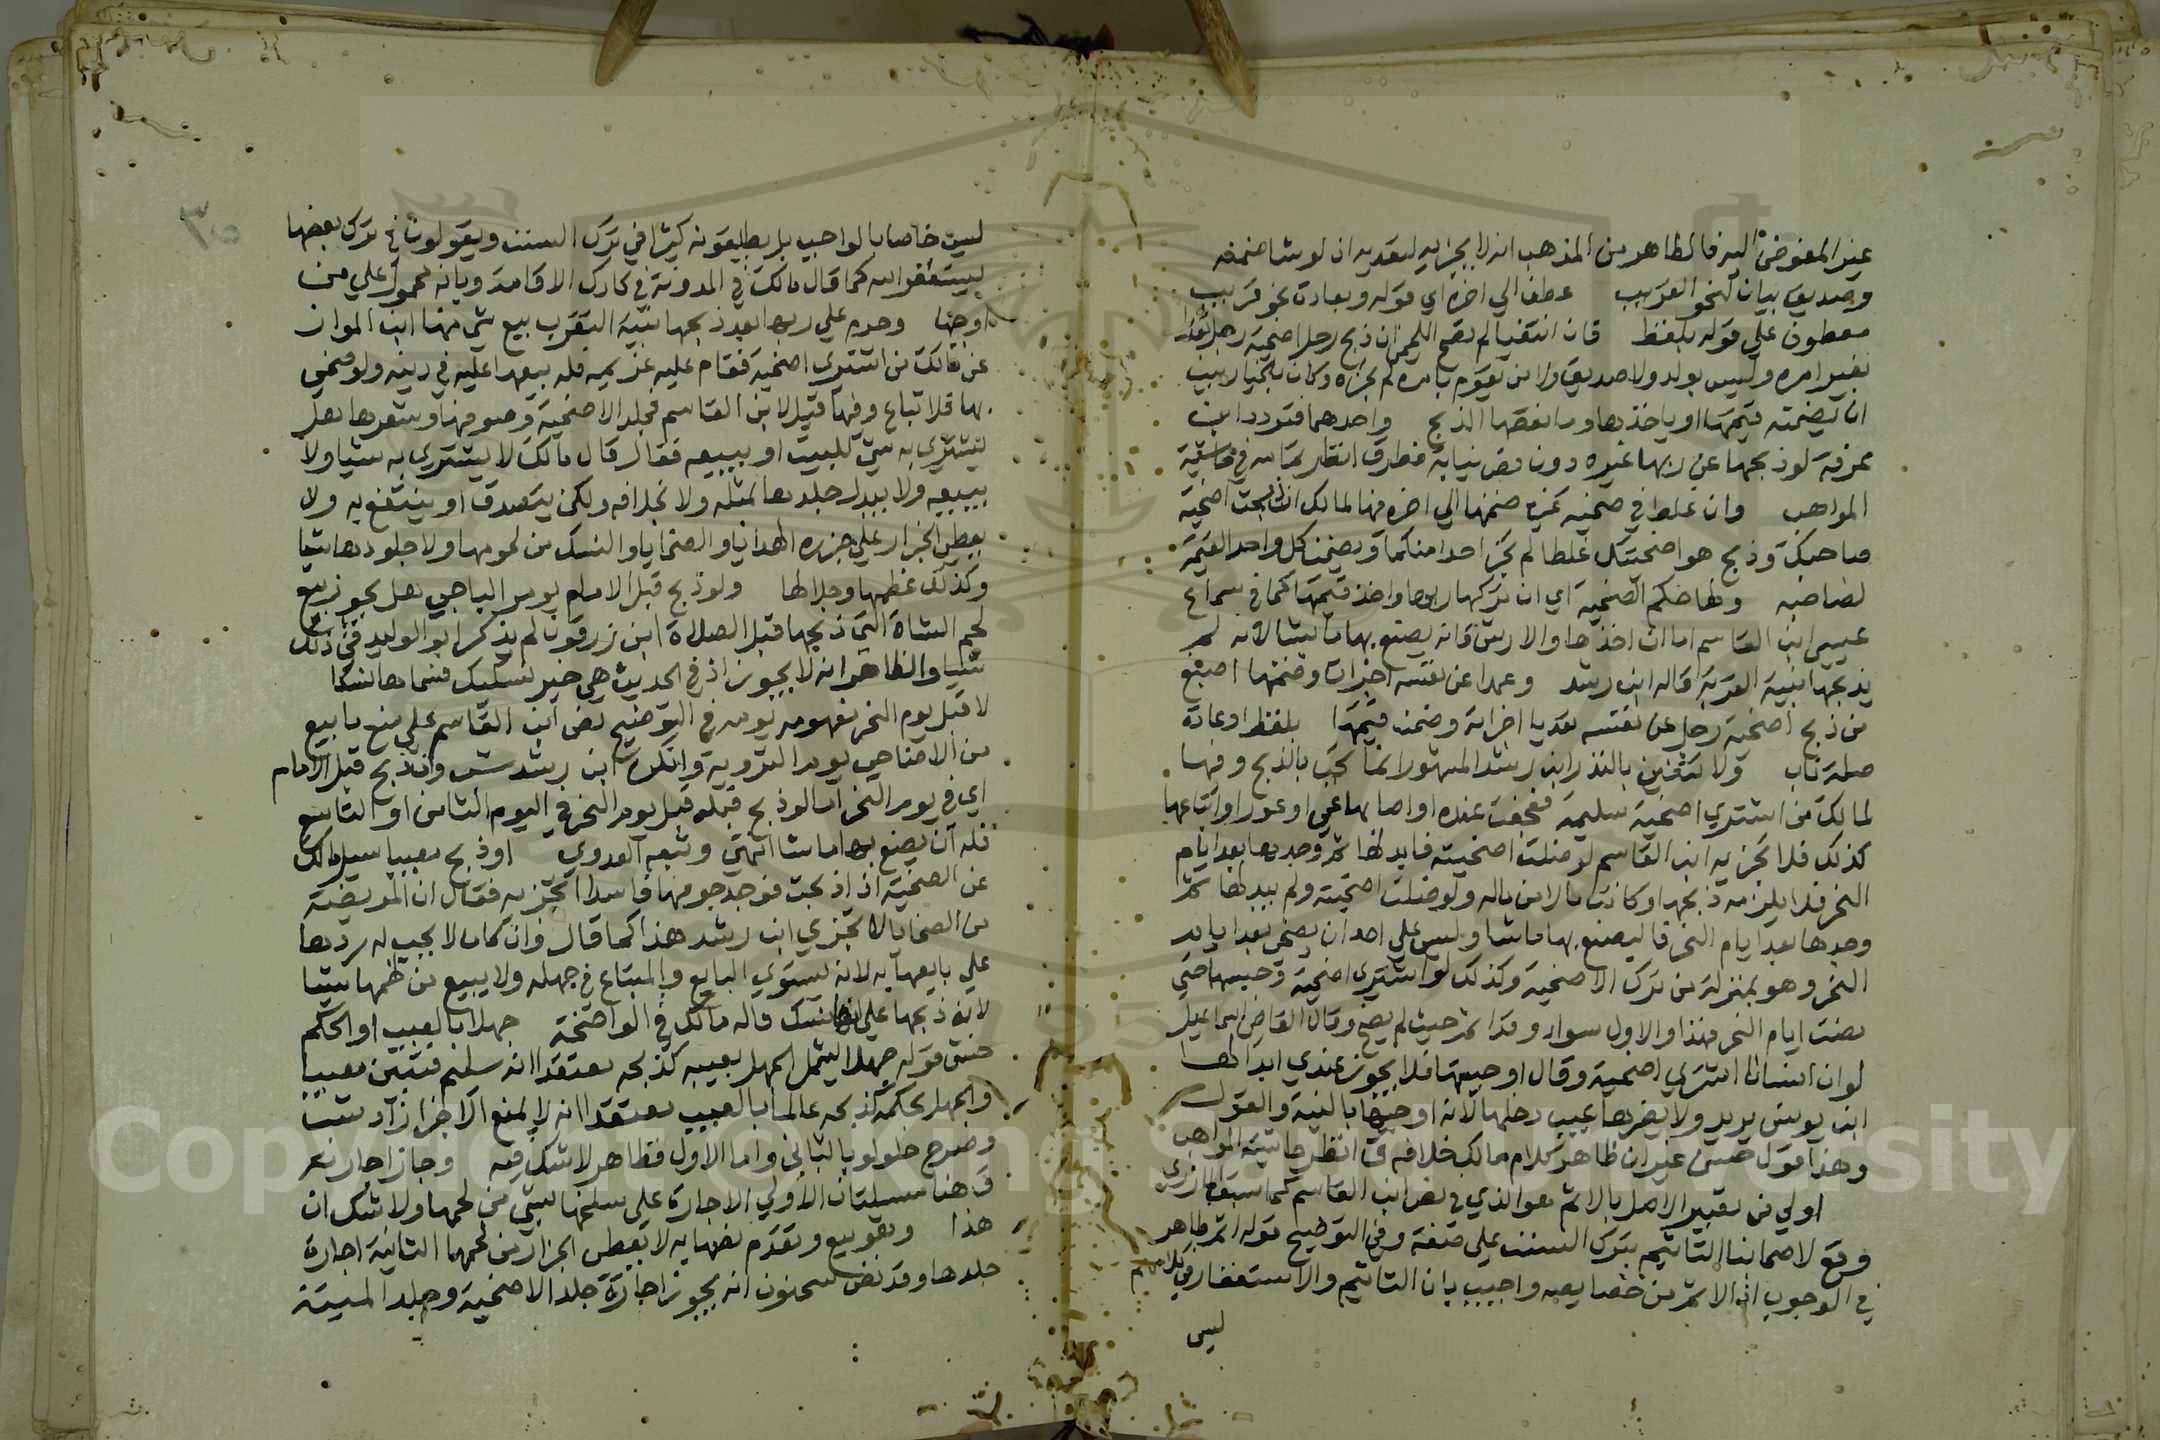 غير المفوض اليه فالظاهر من المذهب انه لا يجزيه لتعديه ان لو شا ضمنه
وصديق بيان لنحو القريب عطف الي اخره اي قوله وبعادة نحو قريب
معطوف علي قوله بلفظ فان انتفيا لم تصح اللخمي ان ذبح رجل اضحية رجل تعدا
بغير امره وليس بولد ولا صديق ولا من يقوم بامره لم يجزه وكان بالخيار بين
ان يضمنه قيمتها او ياخذها وما نقصها الذبح واحدهما فتردد ابن
عرفة لو ذبحها عن ربها غيره دون نيابة فطرق انظر تمامه في حاشية
المواهب وان غلط في ضحية غيره ضمنها الي اخره فيها لمالك ان ذبحت اضحية
صاحبك وذبح هو اضحيتك غلطا لم يجز احدا منكما ويضمن كل واحد القيمة
لصاحبه اي ان تركها ربها واخذ قيمتها كما في سماع
عيسي ابن القاسم اما ان اخذها والارش فانه يصنع بها ما يشا لانه لم
يذبحها بنية القربة قاله ابن رشد وعمدا عن نفسه اجزات وضمنها اصبغ
من ذبح اضحية رجل عن نفسه تعديا اجزاته وضمن قيمتها بلفظ او عادة
صلة ناب ولا تتعين بالنذر ابن رشد المشهور انما تجب بالذبح وفيها
لمالك من اشتري اضحية سليمة فعجفت عنده او اصابها عمي او عور او ابتاعها
كذلك فلا تجزيه ابن القاسم لو ضلت اضحيته فابدلها ثم وجدها بعد ايام
النحر فلا يلزمه ذبحها وكانت مالا من ماله ولو ضلت اضحيته ولم يبدلها ثم
وجدها بعد ايام النحر فاليصنع بها ما شا وليس علي احد ان يضحي بعد ايام
النحر وهو بمنزلة من ترك الاضحية وكذلك لو اشتري اضحية وحبسها حتي
مضت ايام النحر فهذا والاول سوا وقد اثم حيث لم يضح وقال القاضي اسماعيل
لو ان انسانا اشتري اضحية وقال اوجبتها فلا يجوز عندي ابدالها
ابن يونس يريد ولا يضرها عيب دخلها لانه اوجبها بالنية والقول
وهذا قول حسن غير ان ظاهر كلام مالك خلافه انظر حاشية المواهب
اولي من تعبير الاصل بالاثم هو الذي في نص ابن القاسم كما سبق المازري
وقع لاصحابنا التاثيم بترك السنن علي صفة وفي التوضيح قوله اثم ظاهر
في الوجوب اذ الاثم من خصايصه واجيب بان التاثيم والاستغفار في كلامهم
ليس
ليس خاصا بالواجب بل يطلقونه كثيرا في ترك السنن ويقولون في ترك بعضها
يستغفر الله كما قال مالك في المدونة في تارك الاقامة وبانه محمول علي من
اوجبها وحرم علي ربها بعد ذبحها بنية التقرب بيع شي منها ابن المواز
عن مالك من اشتري اضحية فقام عليه غريمه فله بيعها عليه في دينه ولو ضحي
بها فلا تباع وفيها قيل لابن القاسم فجلد الاضحية وصوفها وشعرها هل
يشتري به شي للبيت او يبيعه فقال قال مالك لا يشتري به شيا ولا
يبيعه ولا يبدل جلدها بمثله ولا بخلافه ولكن يتصدق او ينتفع به ولا
يعطي الجزار علي جزره الهدايا والضحايا والنسك من لحومها ولا جلودها شيا
وكذلك خطمها وجلالها ولو ذبح قبل الامام الباجي هل يجوز بيع
لحم الشاة التي ذبحها قبل الصلاة ابن زرقون لم يذكر ابو الوليد في ذلك
شيا والظاهر انه لا يجوز اذ في الحديث هي خير نسكيك فسماها نسكا
لا قبل يوم النحر مفهومه يومه في التوضيح نص ابن القاسم علي منع ما بيع
من الاضاحي يوم التروية وانكره ابن رشد وان ذبح قبل الامام
اي في يوم النحر اما لو ذبح قبله قبل يوم النحر في اليوم الثامن او التاسع
فله ان يصنع بها ما شا انتهي وتبعه العدوي او ذبح معيبا سيل مالك
عن الضحية اذا ذبحت فوجد جوفها فاسدا اتجزيه فقال ان المريضة
من الضحايا لا تجزي ابن رشد هذا كما قال وان كان لا يجب له ردها
علي بايعها به لانه يستوي البايع والمبتاع في جهله ولا يبيع من لحمها شيا
لانه ذبحها علي انها نسك قاله مالك في الواضحة جهلا بالعيب او الحكم
قوله جهلا ليشمل الجهل بعيبه كذبحه معتقدا انه سليم فتبين معيبا
والجهل بحكمه كذبحه عالما بالعيب معتقدا انه لا يمنع الاجزا
وصرح حلولو بالثاني واما الاول فظاهر لا شك فيه وجاز اجارتها
هنا مسيلتان الاولي الاجارة علي سلخها بشي من لحمها ولا شك ان
هذا وهو بيع وتقدم نصها به لا يعطي الجزار من لحمها الثانية اجارة
جلدها وقد نص سحنون انه يجوز اجارة جلد الاضحية وجلد الميتة
Copyright © King Saud University